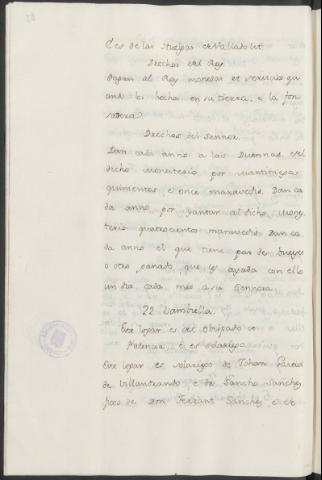 Ces de las Huelgas de Valladolit
Drechos del Rey
Pagan al Rey monedas et servicios qu
ando los hechan en su tierra, e la fon
sadera.
Drechos del Sennor
Dan cada anno a las Duennas del
dicho Monesterio por
quinientos e once maravedis. Dan ca
da anno por yantar al dicho Mones
terio quatrocientos maravedis. Dan ca
da anno el que tiene par de bueyes
o otro ganado que ly ayuda con ello
un dia cada mes a su Sennoria.
22
Este logar es del Obispado de
Palencia, e es solariego
Este logar es solariego de Iohan Garcia
de Villandrando e de Sancho Sanchez
fijos de Don Ferrant Sanchez e de